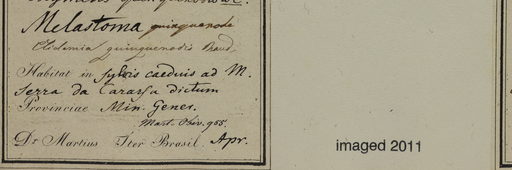 Melastoma quinquenode
Clidemia quinquenodis Baud.
Habitat in sylvis caeduis ad M.
Serra da Carassa dictum
Provinciae Min. Genes.
Mart. Obsv. 955.
Dr Martius Iter Brasil. Apr.
imaged 2011